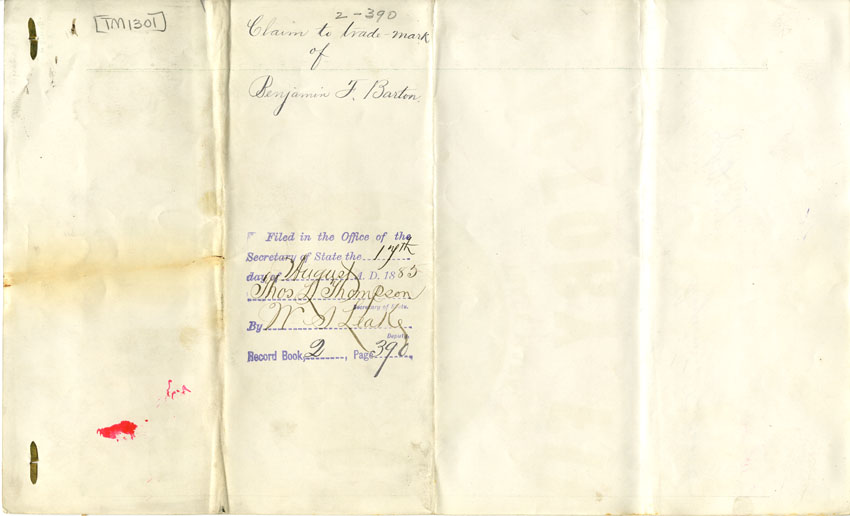 [TM1301]
2-390
Claim to trade-mark
of
Benjamin F. Barton
Filed in the Office of the
Secretary of State the 17th
day of August A. D. 1885
Thos L Thompson
Secretary of State.
By W
Deputy.
Record Book, 2, Page 390.